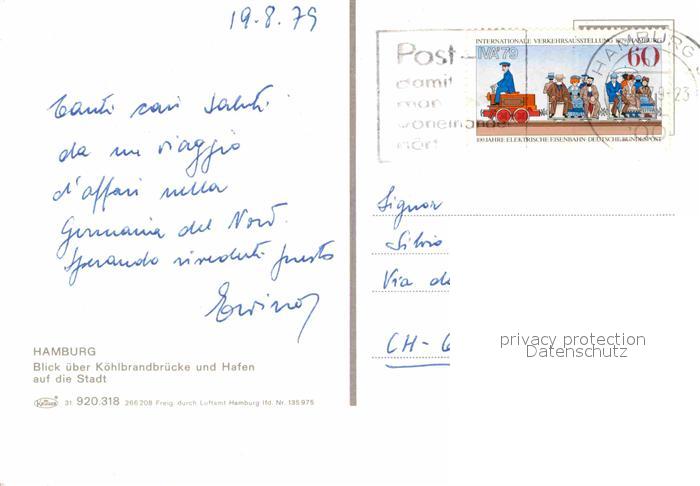 19.8.79
Tanti cari saluti
da un viaggio
d'affari nella
Germania del Nord.
Sperando rivederti presto
HAMBURG
Blick über Köhlbrandbrücke und Hafen
auf die Stadt
Krüger 31 920.318 266208 Freig. durch Luftamt Hamburg lfd. Nr. 135975
Post-
damit
man
voneinander
hört
INTERNATIONALE VERKEHRSAUSSTELLUNG 1979 HAMBURG
IVA'79
60
100 JAHRE ELEKTRISCHE EISENBAHN·DEUTSCHE BUNDESPOST
HAMBURG
-23
Signor
Silvio
Via
CH-6
privacy protection
Datenschutz